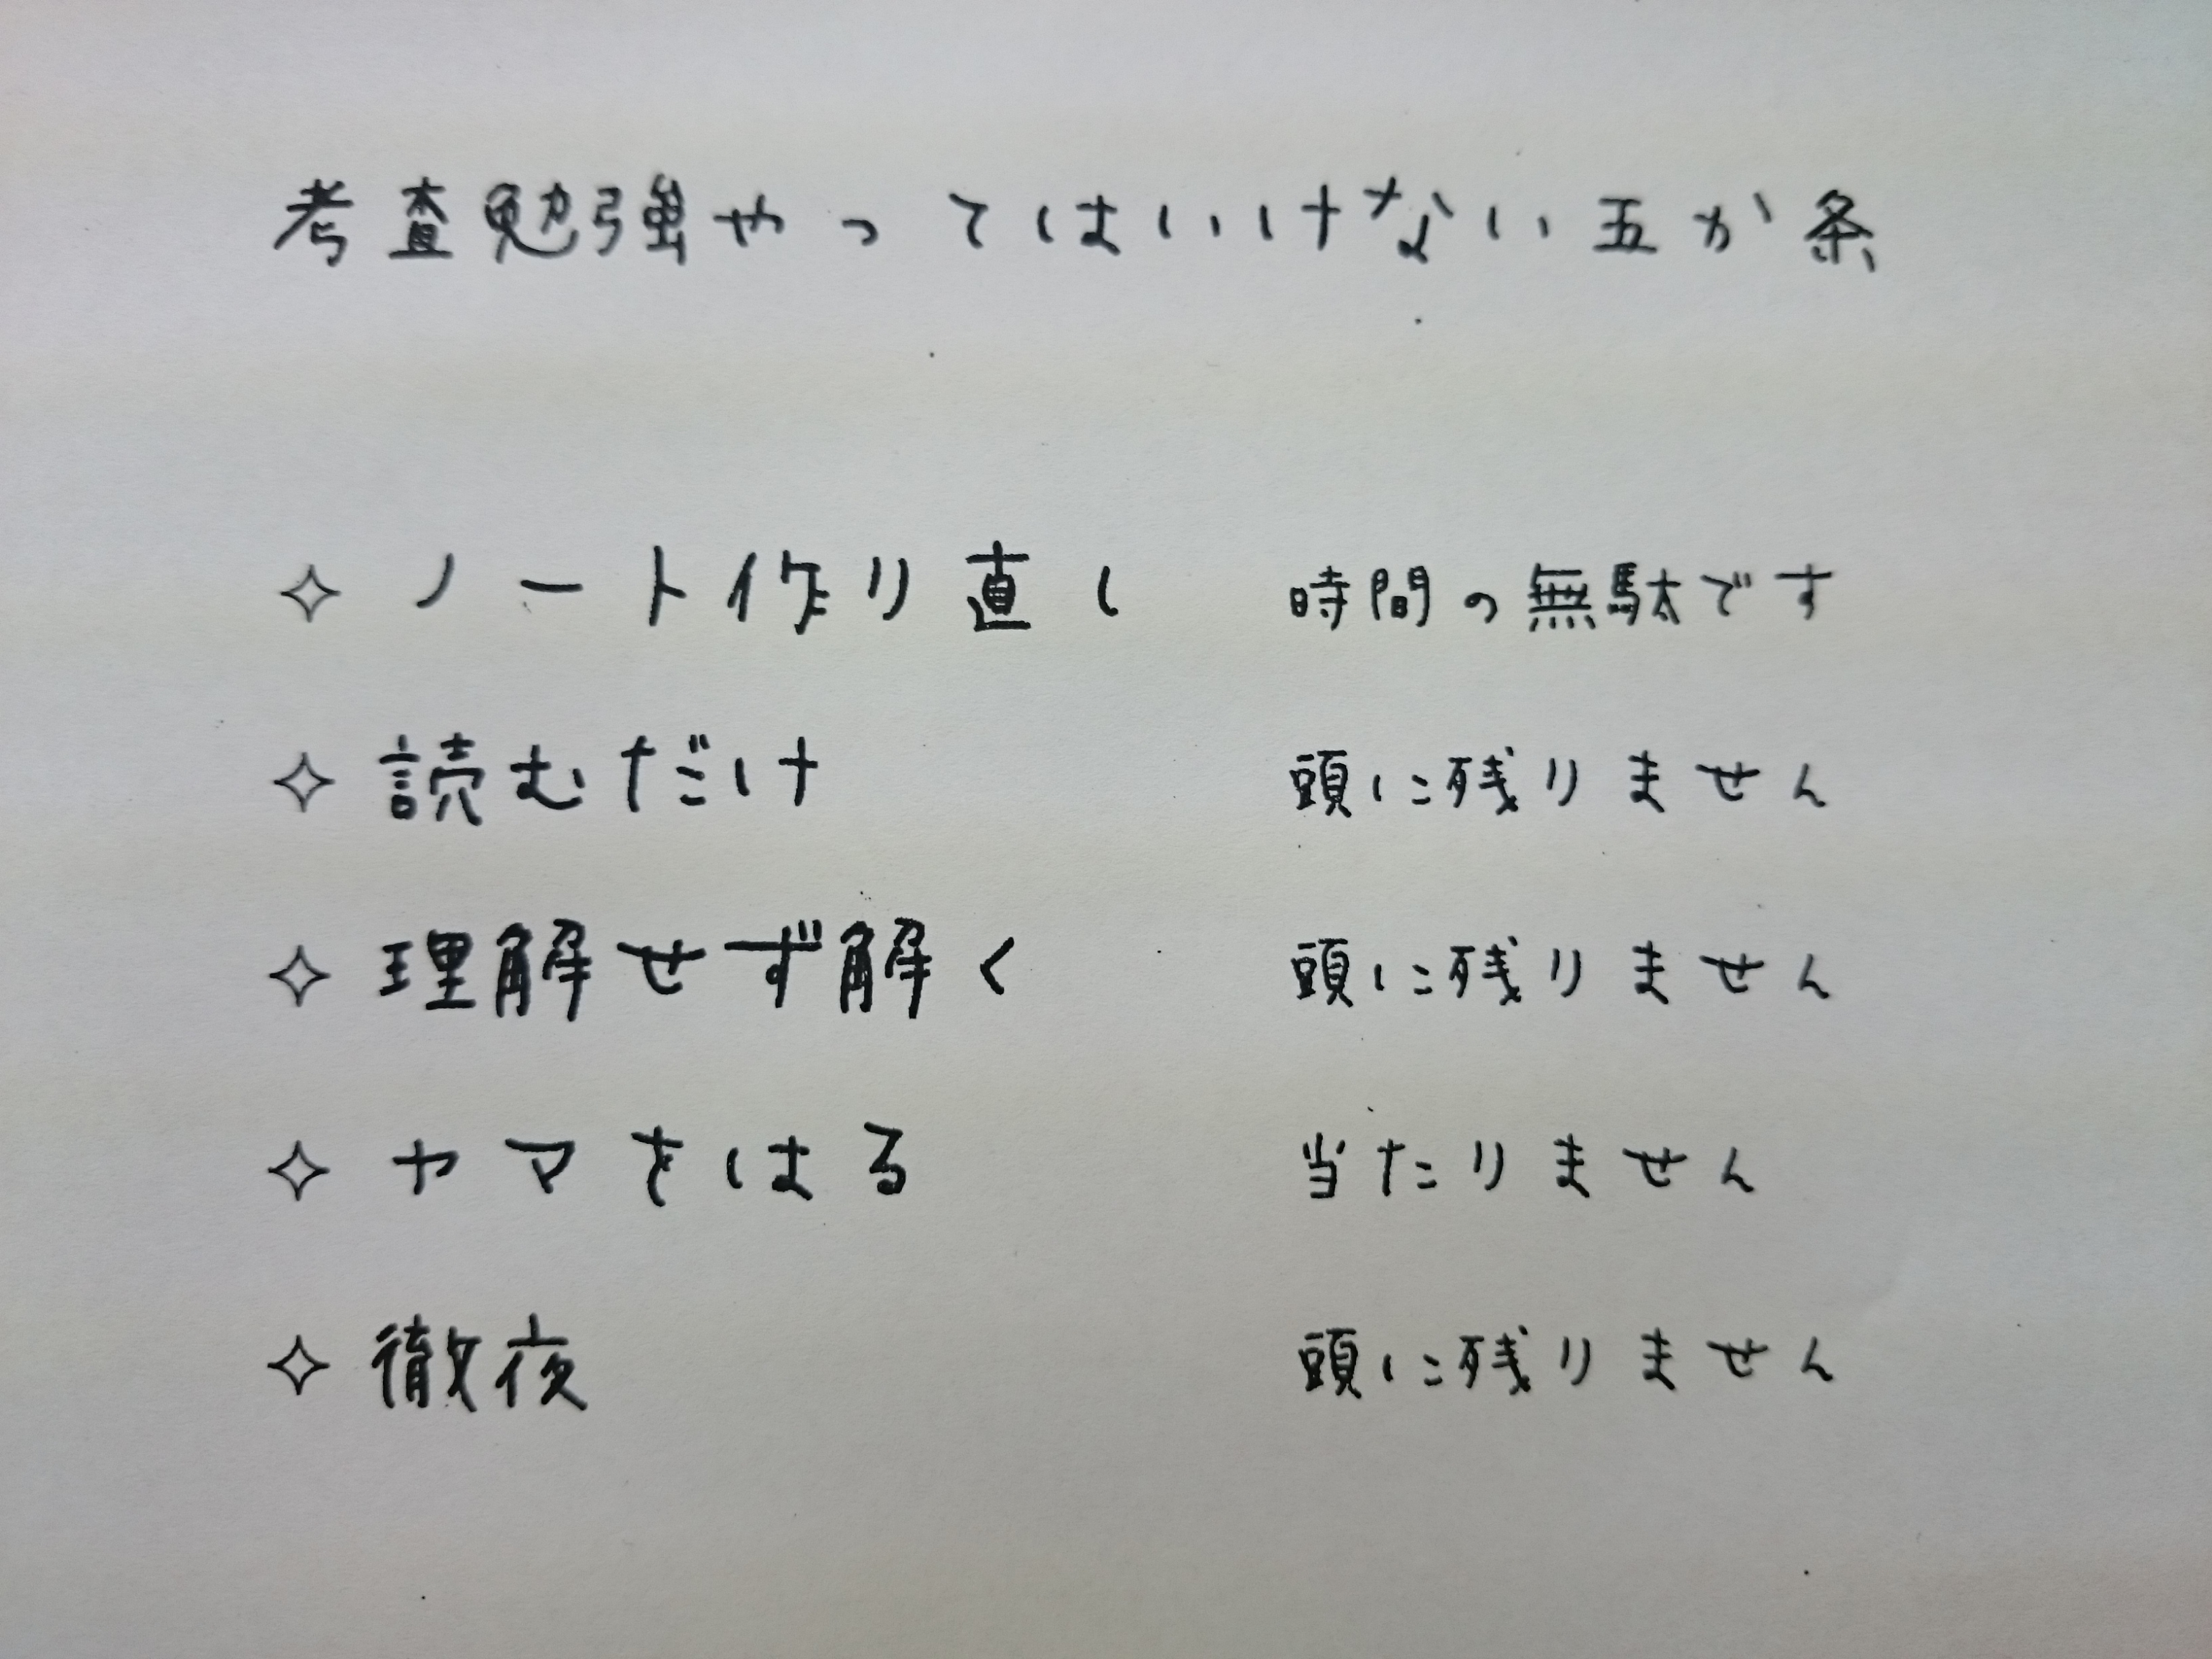 考査勉強やってはいけない五か条
✧ ノート作り直し 時間の無駄です
✧ 読むだけ 頭に残りません
✧ 理解せず解く 頭に残りません
✧ ヤマをはる 当たりません
✧ 徹夜 頭に残りません